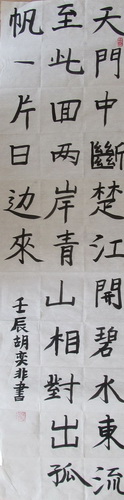 天門中斷楚江開碧水東流
至此回两岸青山相對出孤
帆一片日边來
壬辰胡奕非書